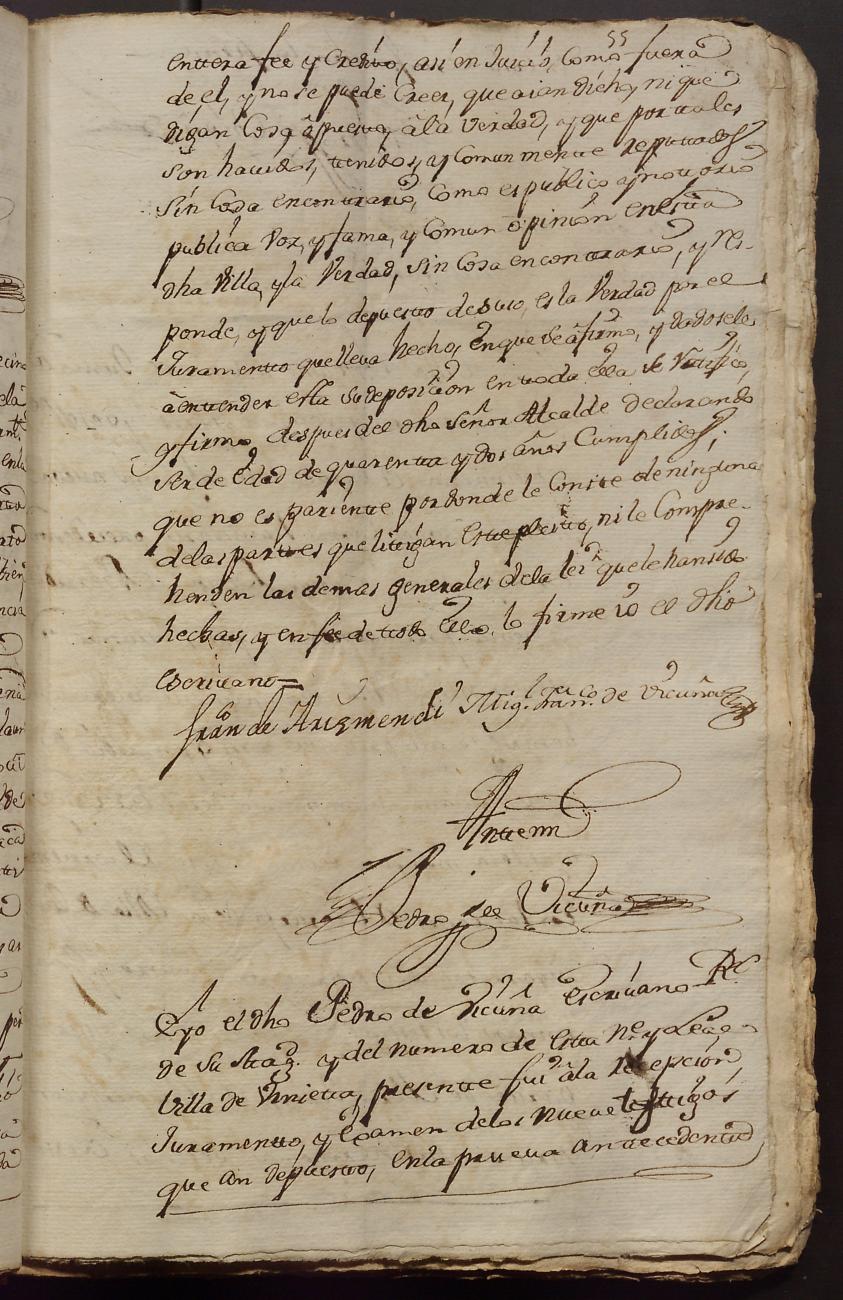 55
entera fee y Credito, así en Juicio, Como fuera
de el, y no se puede Creer, que aian dicho, ni que
digan Cosa opuesta, â la Verdad, y que por tales
son havidos, tenidos, y Comunmente reputados
sin Cosa en contrario, Como es publico y notorio
publica Voz, y fama, y Comun opinion en esta
dha Villa, y la Verdad, sin Cosa en contrario, y res-
ponde, y que lo depuesto de suso, es la Verdad por el
Juramento que lleva hecho, en que se afirmo, y dadosele
â entender esta su deposicion en toda ella se ratifico,
y firmo, despues del dho Señor Alcalde Declarando
ser de edad de quarenta y dos años Cumplidos,
que no es pariente por donde le Conste de ninguna
de las partes que litigan este pleito, ni le Compre-
henden las demas generales de la lei que le han sido
hechas, y en fee de todo ello, lo firme io el dho
escrivano=
Fran.co de Arizmendi Mig.l Fran.co de Vicuña
Antemi
Pedro de Vicuña
E yo el dho Pedro de Vicuña escrivano R.l
de su Mag.d y del numero de esta N.e y Leal
Villa de Urnieta, presente fui â la recepcion,
Juramento, y examen de los nueve testigos
que an depuesto, en la prueva antecedente